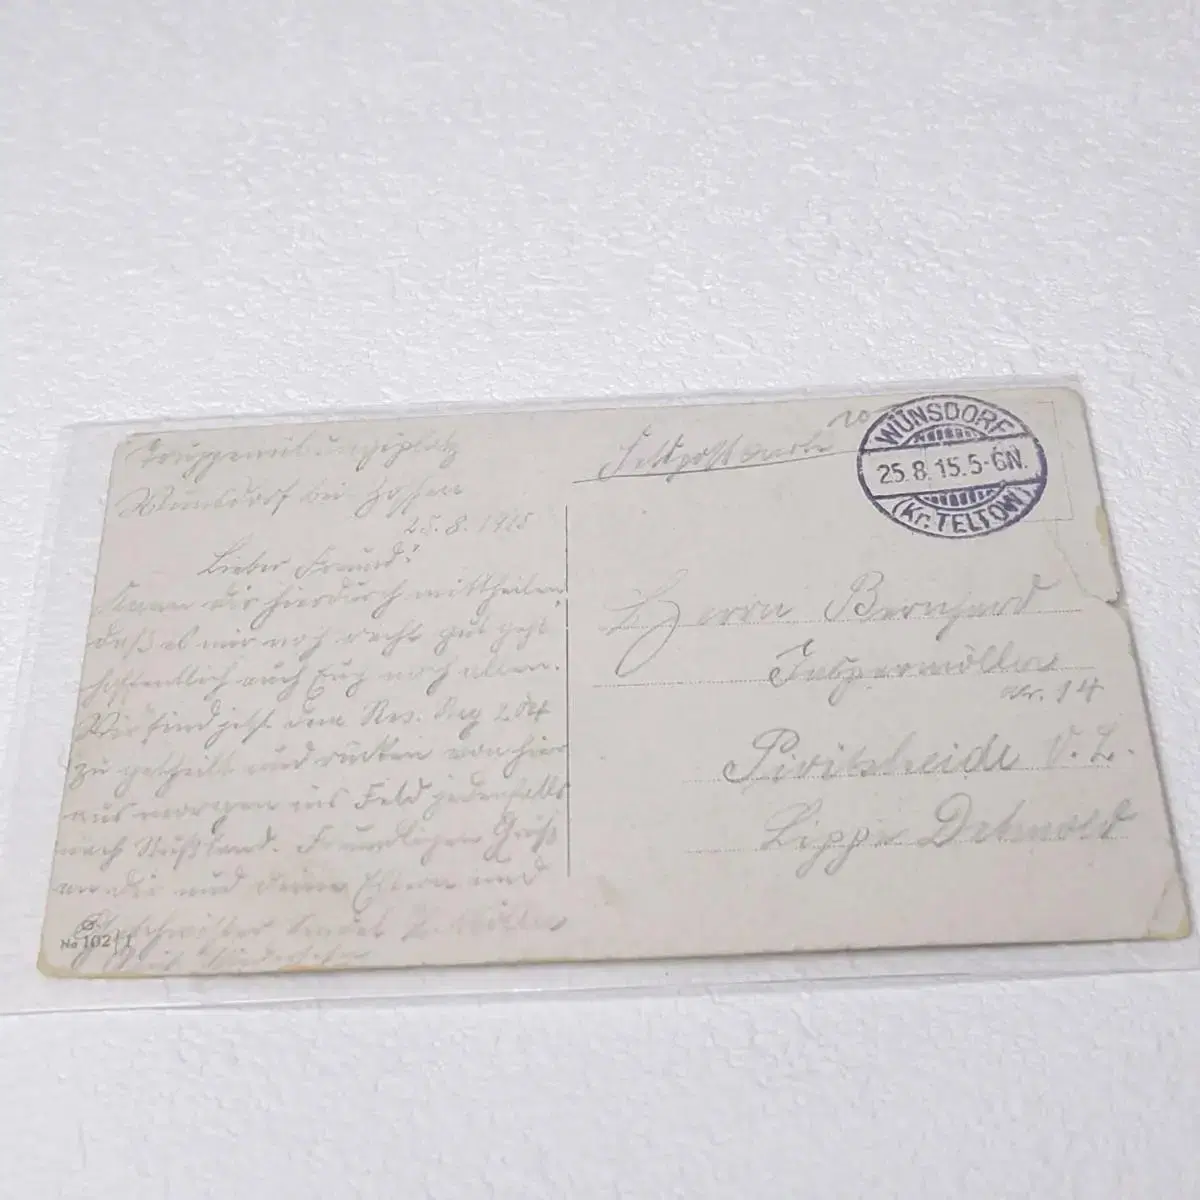 Truppenübungsplatz
Wünsdorf bei Zossen
25.8.1915
Lieber Freund!
Kann dir hierdurch mittheilen
daß es mir noch recht gut geht
hoffentlich auch Euch noch allen.
Wir sind jetzt dem Res.
zu getheilt und rücken von hier
aus morgen ins Feld jedenfalls
nach Rußland. Freundlichen Gruß
an dir und deine Eltern und
Geschwister
G.
No 102/1
Feldpostkarte
WÜNSDORF
25.8.15.5-6N.
(Kr. TELTOW)
Herrn Bernhard
nr. 14
Pivitsheide V. L.
Lippe Detmold